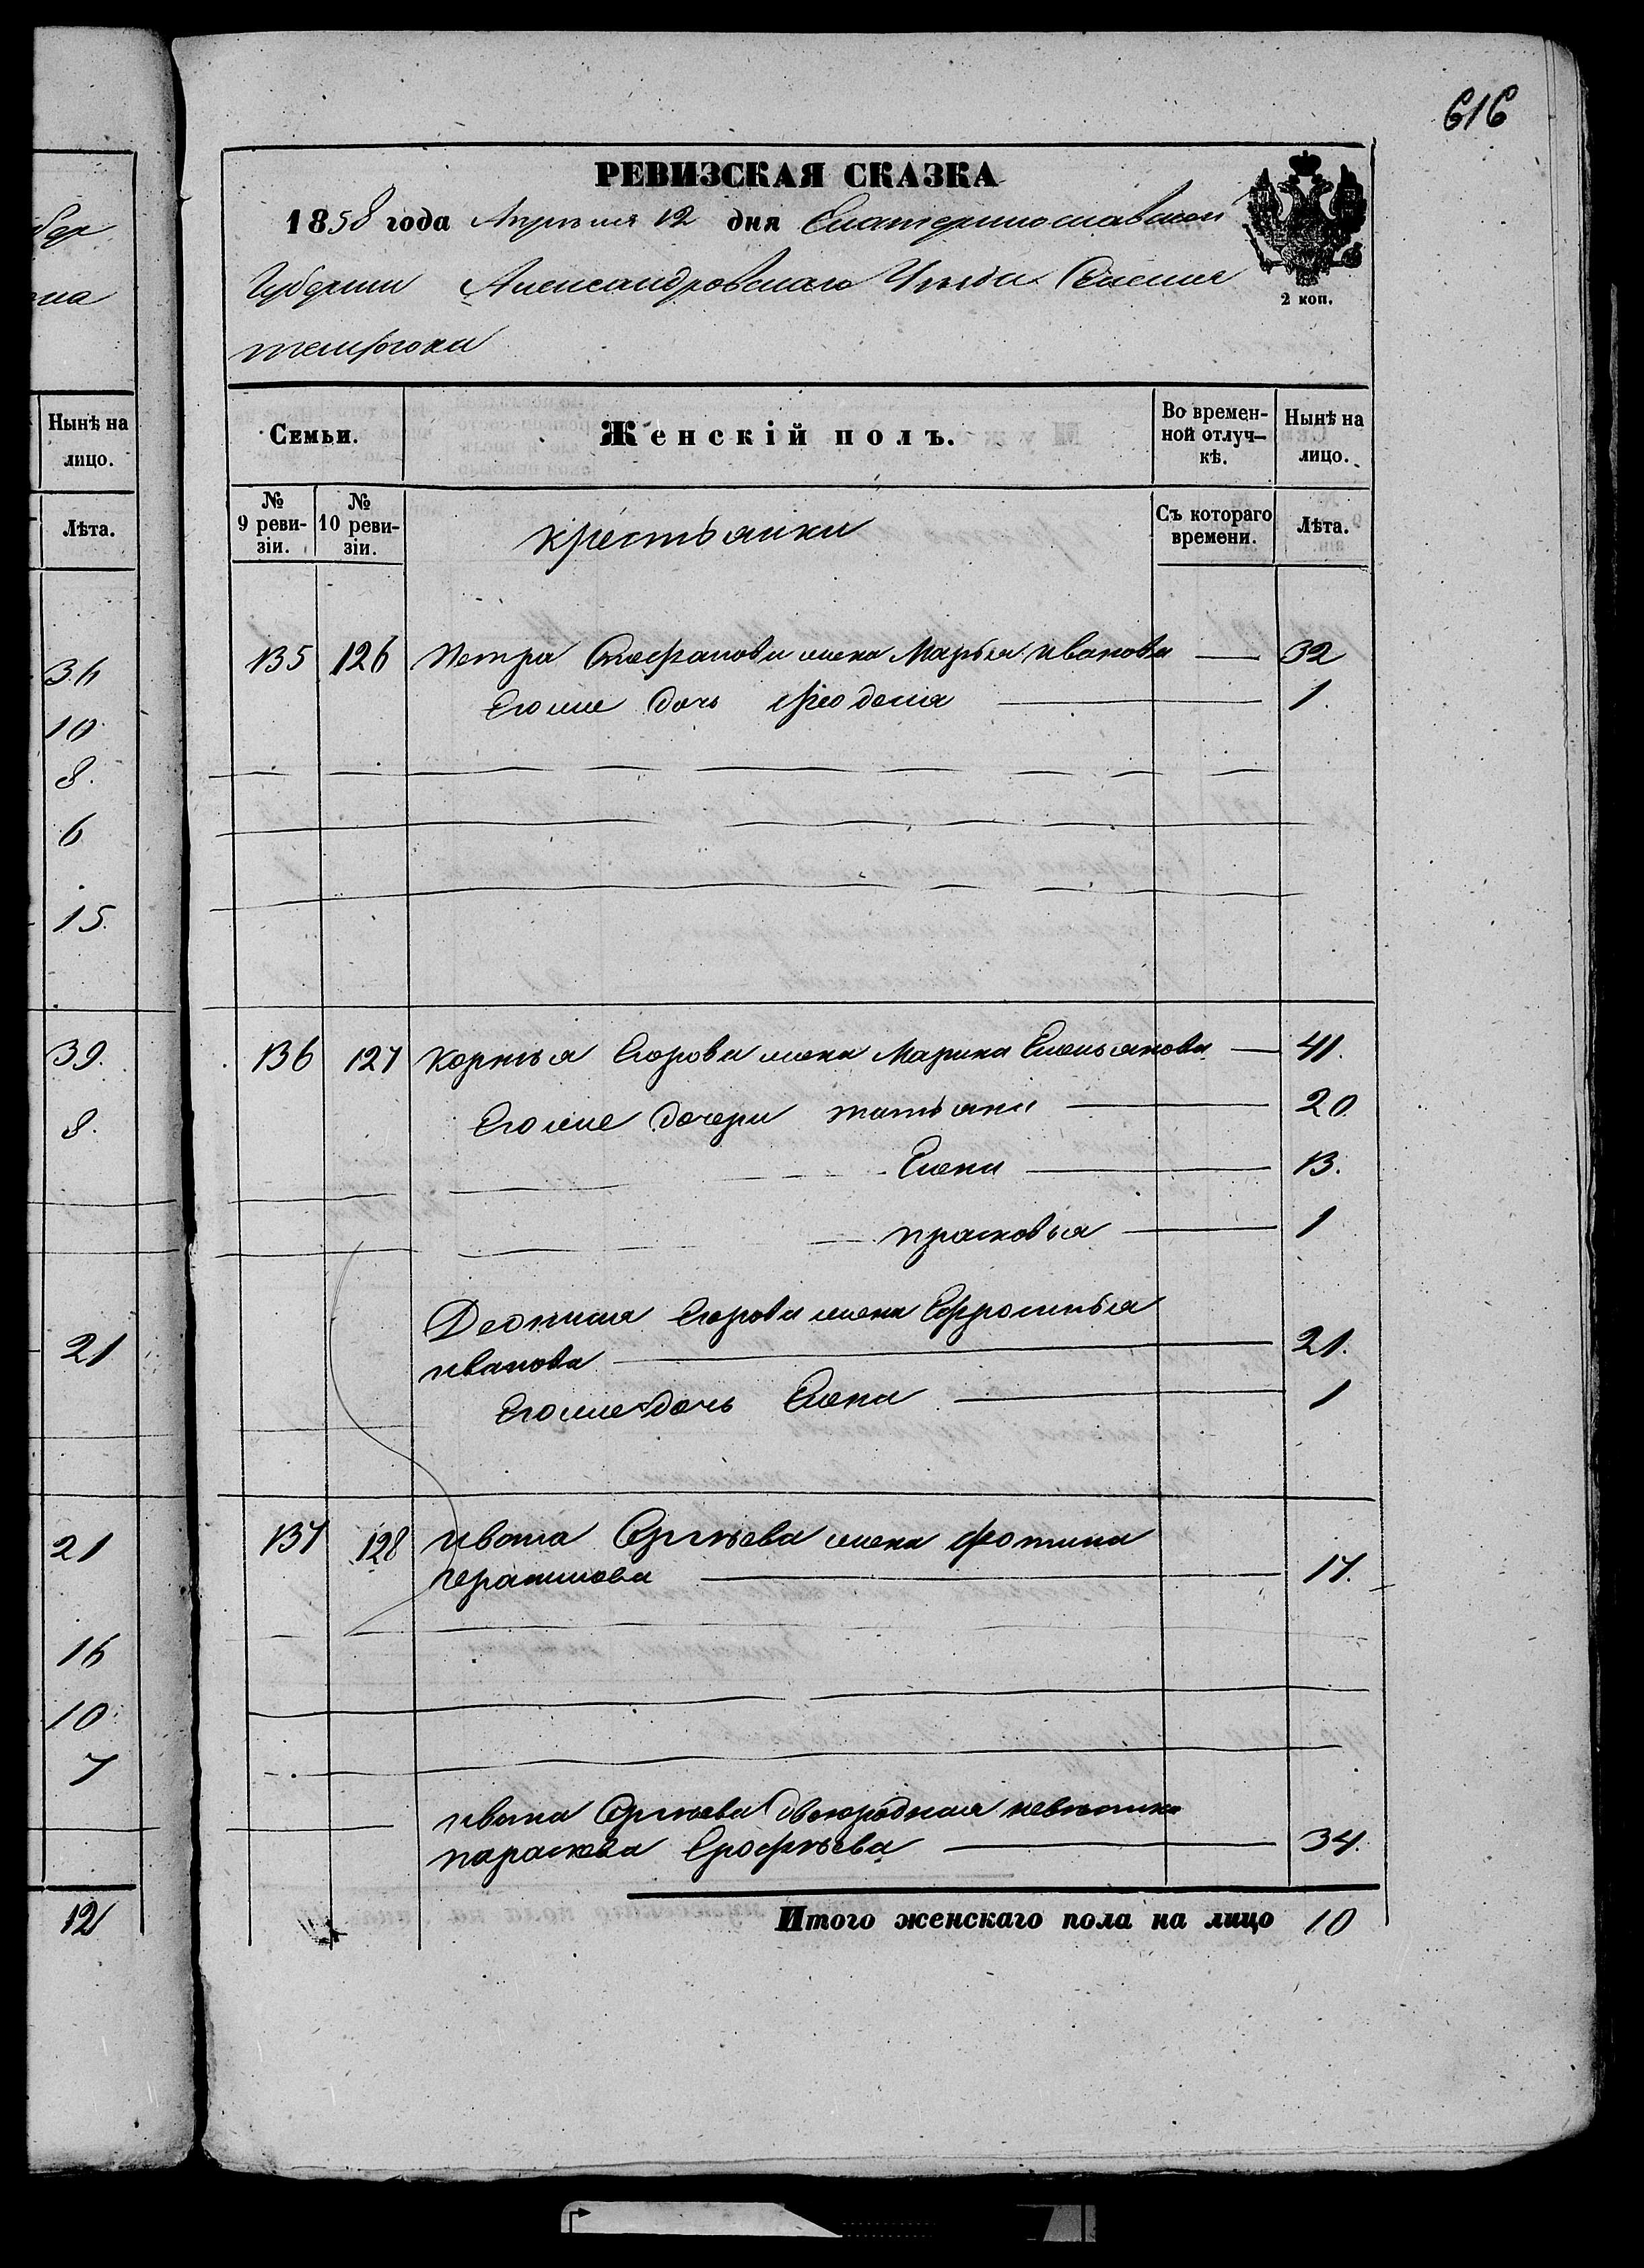 616
бер
на
Нынѣ на
лицо.
Лѣта.
36
10
8.
6
15.
39.
8.
21
21
16
10.
7
12
РЕВИЗСКАЯ СКАЗКА
1858 года Апрѣля 12 дня Екатеринославской
Губернии Александровскаго Уѣзда Селения
2 коп.
Семьи.
Женскій полъ.
Во времен-
ной отлуч-
кѣ.
Нынѣ на
лицо.
№
9 реви-
зіи.
№
10 реви-
зіи.
крестьянки
Съ котораго
времени.
Лѣта.
135 126 Петра Стефанова жена Марья Иванова — 32
Его же дочь Феодосия — 1.
136 127 Корнѣя Егорова жена Марина Емельянова — 41.
Его же дочери татьяна — 20
Елена — 13.
прасковья — 1
Деониса Егорова жена Ефросинья
иванова — 21.
Его же дочь Елена — 1
137 128 ивана Сергѣева жена Фотина
Герасимова — 17.
ивана Сергѣева двоюродная невѣстка
параскева Ерофѣева — 34.
Итого женскаго пола на лицо 10